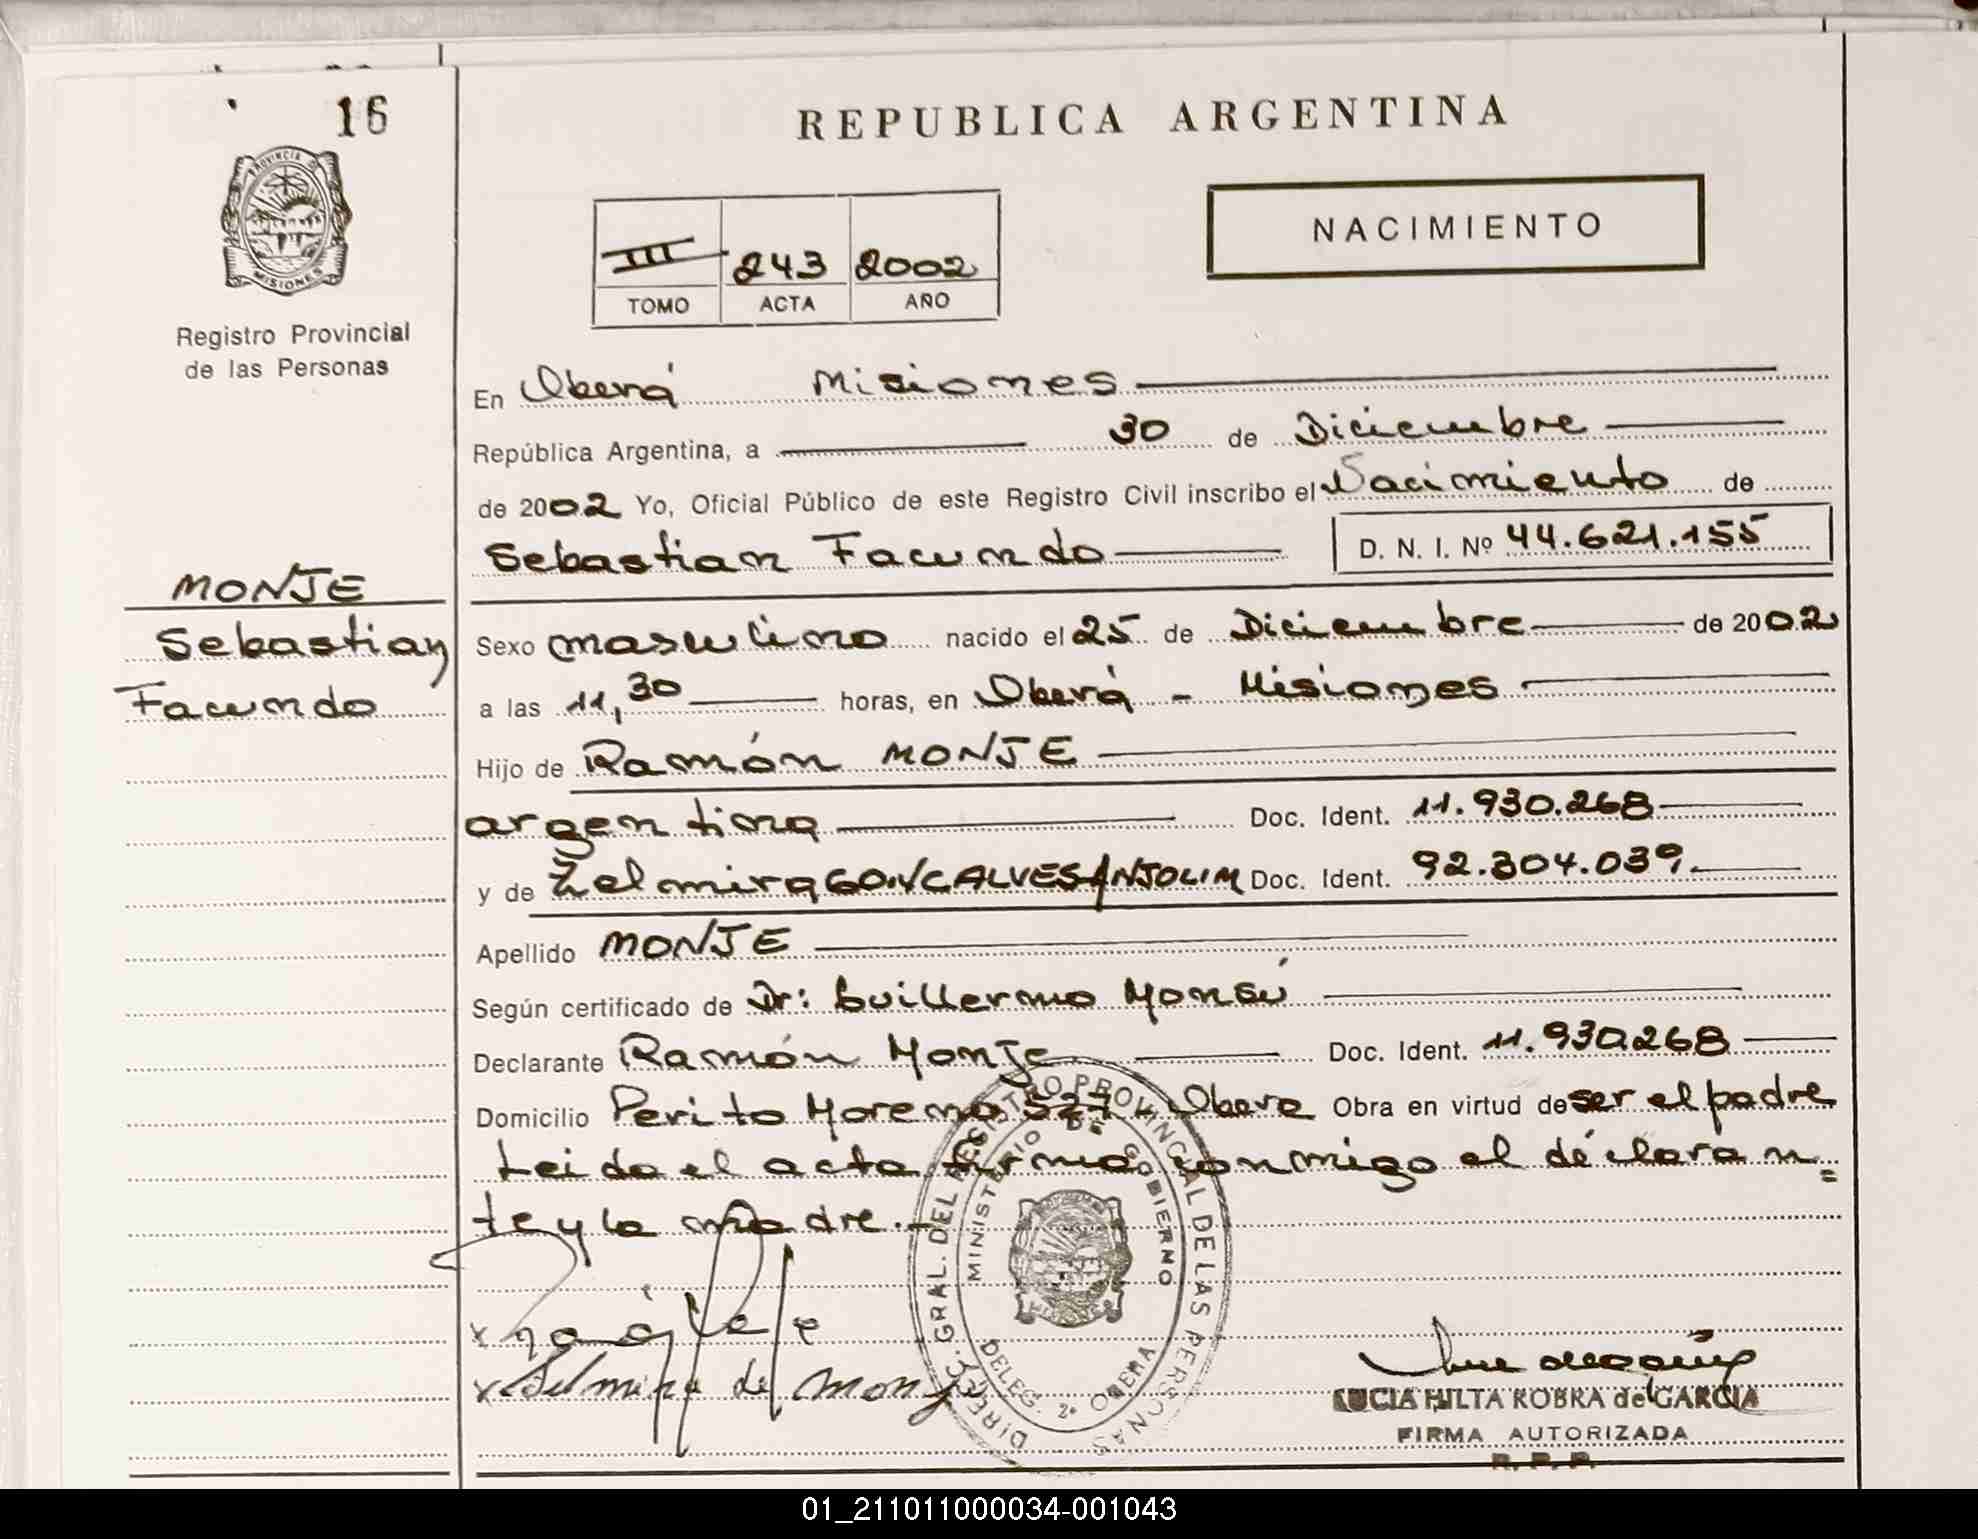 16
REPUBLICA ARGENTINA
PROVINCIA D
MISIONES
Registro Provincial
de las Personas
NACIMIENTO
III 243 2002
TOMO ACTA AÑO
En Oberá Misiones
República Argentina, a 30 de Diciembre
de 2002 Yo, Oficial Público de este Registro Civil inscribo el Nacimiento de
Sebastian Facundo D. N. I. Nº 44.621.155
MONJE
Sebastian
Facundo
Sexo masculino nacido el 25 de Diciembre de 2002
a las 11,30 horas, en Oberá - Misiones
Hijo de Ramón MONJE
argentina Doc. Ident. 11.930.268
y de Zelmira GONCALVES ANJOLIM Doc. Ident. 92.304.039
Apellido MONJE
Según certificado de Dr: Guillermo Monsú
Declarante Ramón Monje Doc. Ident. 11.930268
Domicilio Perito Moreno 527 - Obera Obra en virtud de ser el padre
Leida el acta firma conmigo el declaran=
te y la madre.-
DIREC. GRAL. DEL REGISTRO PROVINCIAL DE LAS PERSONAS
MINISTERIO DE GOBIERNO
DELEG. 2ª OBERA
x Zelmira de Monje
LUCIA HILTA ROBRA de GARCIA
FIRMA AUTORIZADA
R. P. P.
01_211011000034-001043